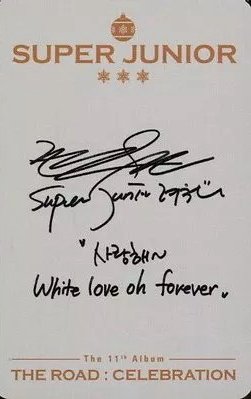 SUPER JUNIOR
Super Junior 려욱
"사랑해~
White love oh forever.
The 11th Album
THE ROAD : CELEBRATION